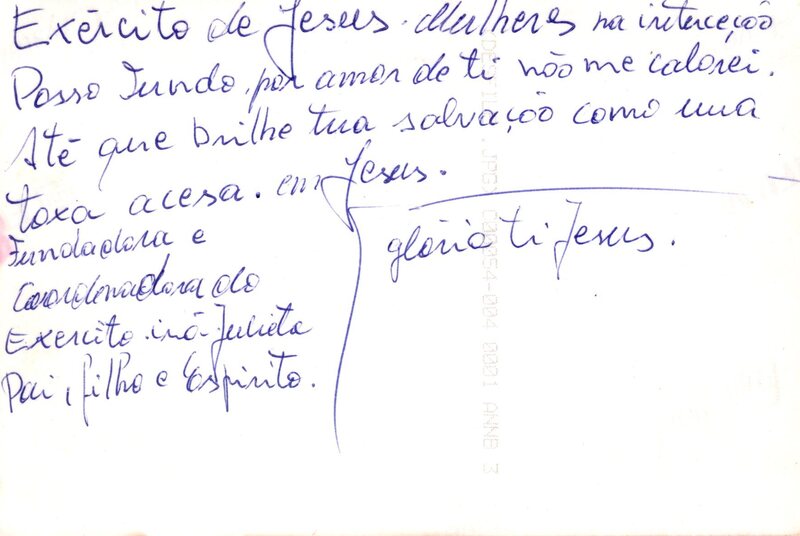 Exército de Jesus. Mulheres na interceção
Passo Fundo, por amor de ti não me calarei.
Até que brilhe tua salvação como uma
toxa acesa. em Jesus.
Fundadora e
Coordenadora do
Exercito. irá-Julieta
Pai, filho e Espirito.
glória ti Jesus.
004 0001 ANNB 3